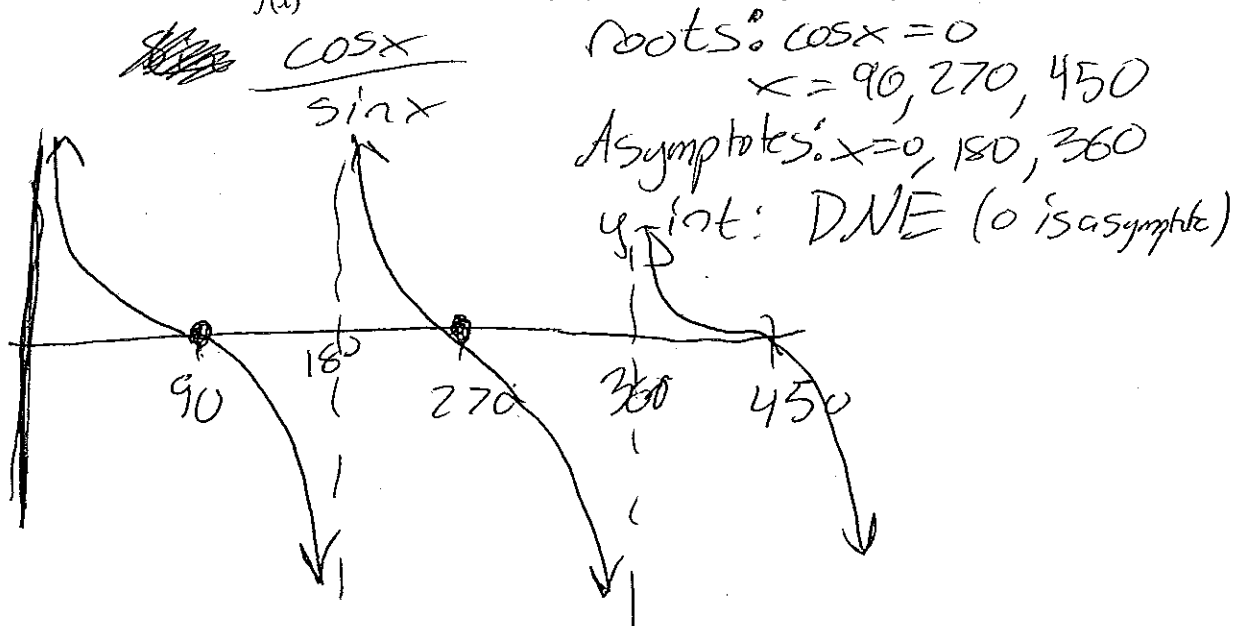 cosx
sinx
roots: cosx = 0
x = 90, 270, 450
Asymptotes: x=0, 180, 360
y-int: DNE (0 is asymptote)
90 180 270 360 450